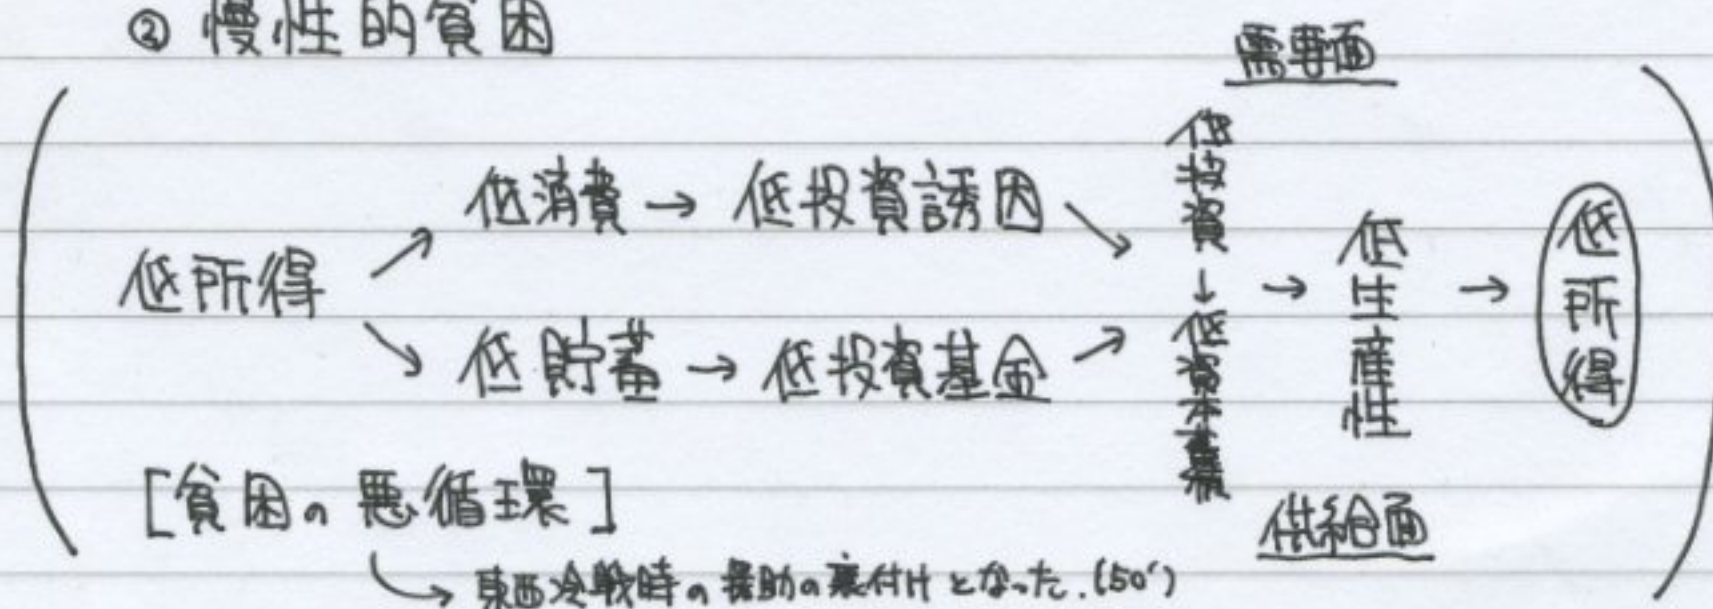 ② 慢性的貧困
需要面
低消費 → 低投資誘因
低所得
低貯蓄 → 低投資基金
低投資→低資本蓄積
→ 低生産性 → 低所得
[貧困の悪循環]
供給面
→ 東西冷戦時の援助の裏付けとなった.(50')